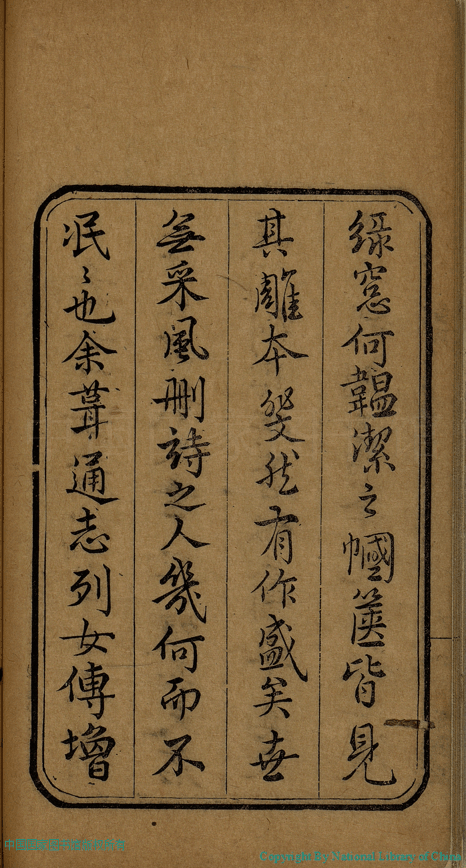 綠窓何韞潔之幗篋皆見
其雕本斐然有作盛矣世
無采風刪詩之人幾何而不
泯〻也余葺通志列女傳增
Copyright By National Library of China